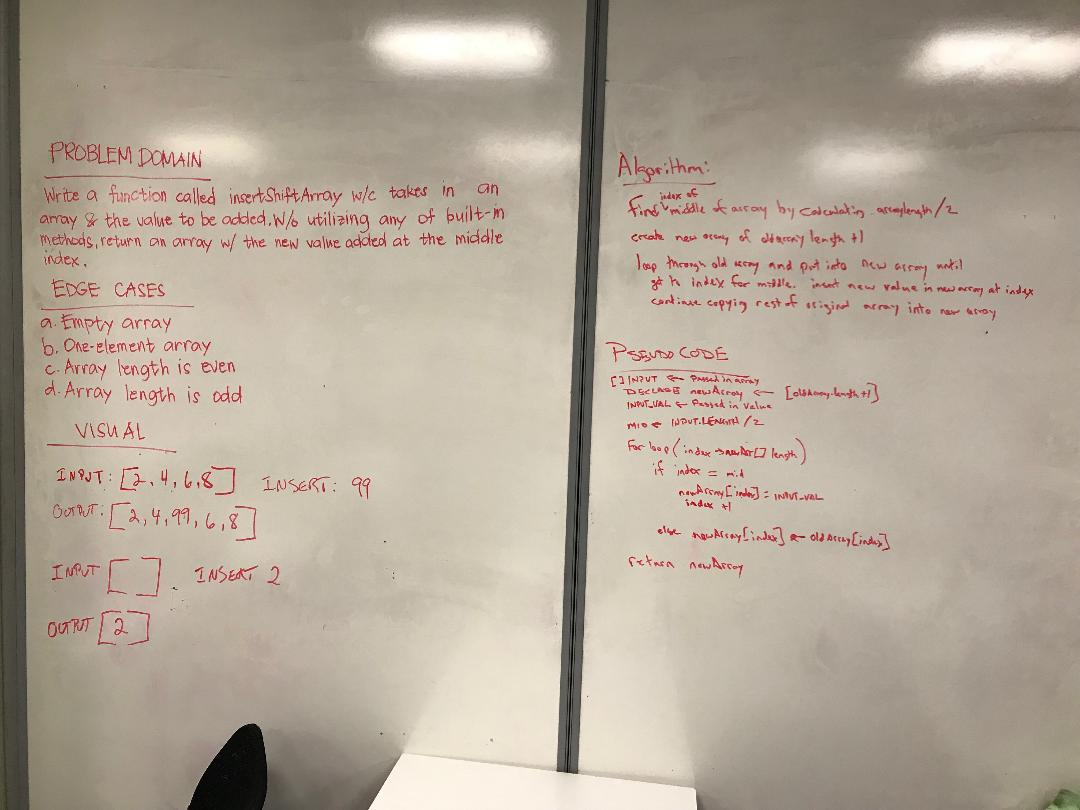 PROBLEM DOMAIN
Write a function called insertShiftArray w/c takes in an
array & the value to be added. W/o utilizing any of built-in
methods, return an array w/ the new value added at the middle
index.
EDGE CASES
a. Empty array
b. One-element array
c. Array length is even
d. Array length is odd
VISUAL
INPUT: [2, 4, 6, 8] INSERT: 99
OUTPUT: [2, 4, 99, 6, 8]
INPUT [ ] INSERT 2
OUTPUT [2]
Algorithm:
index of
find middle of array by calculating arraylength/2
create new array of oldarray length +1
loop through old array and put into new array until
get to index for middle. insert new value in new array at index
continue copying rest of original array into new array
PSEUDO CODE
[] INPUT ← Passed in array
DECLARE newArray ← [oldArray.length +1]
INPUT_VAL ← Passed in value
MID ← INPUT.LENGTH/2
For loop (index → newArr[] length)
if index = mid
newArray[index] = INPUT_VAL
index +1
else newArray[index] ← oldArray[index]
return newArray